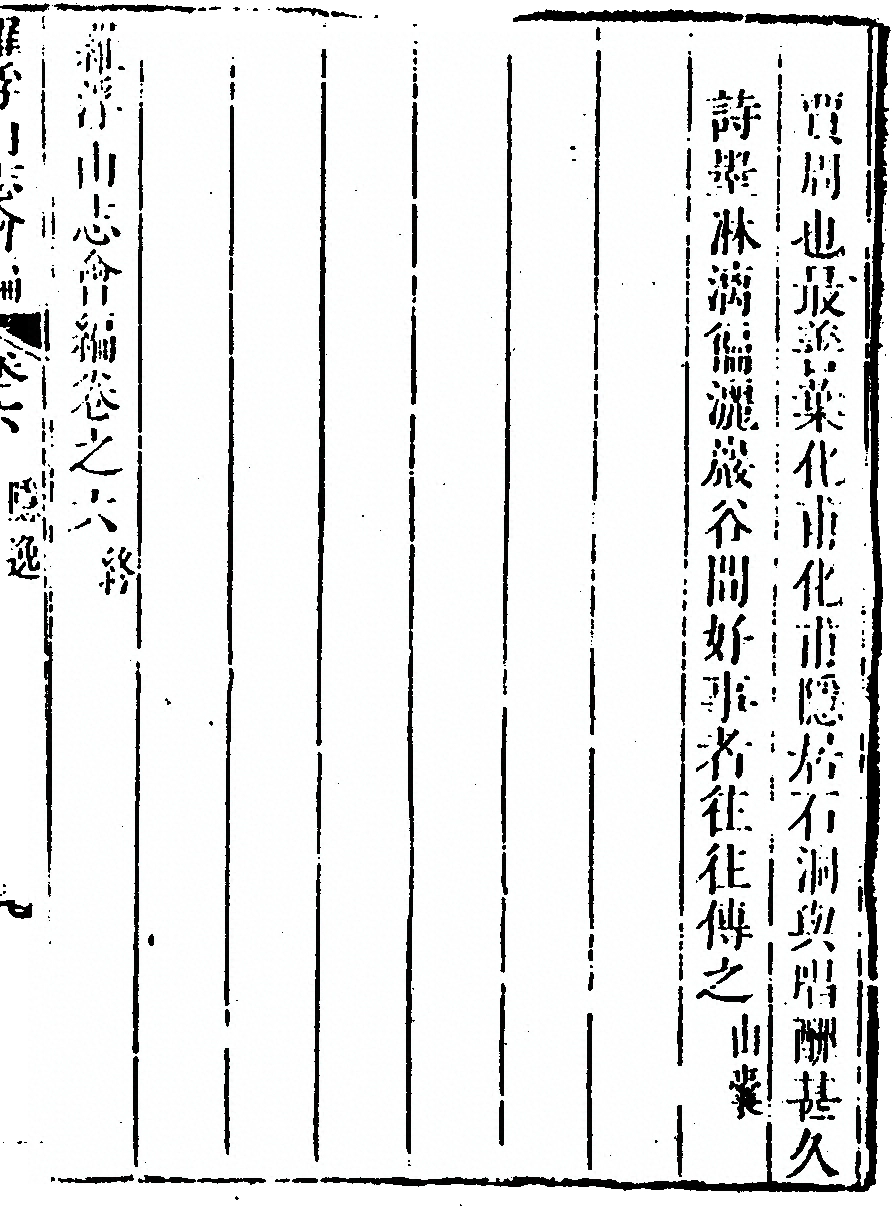 買周也最善葉化甫化甫隱居石洞與唱酬甚久
詩墨淋漓徧灑巖谷間好事者往往傳之山囊
羅浮山志會編卷之六終
羅浮山志會編 卷六 隱逸